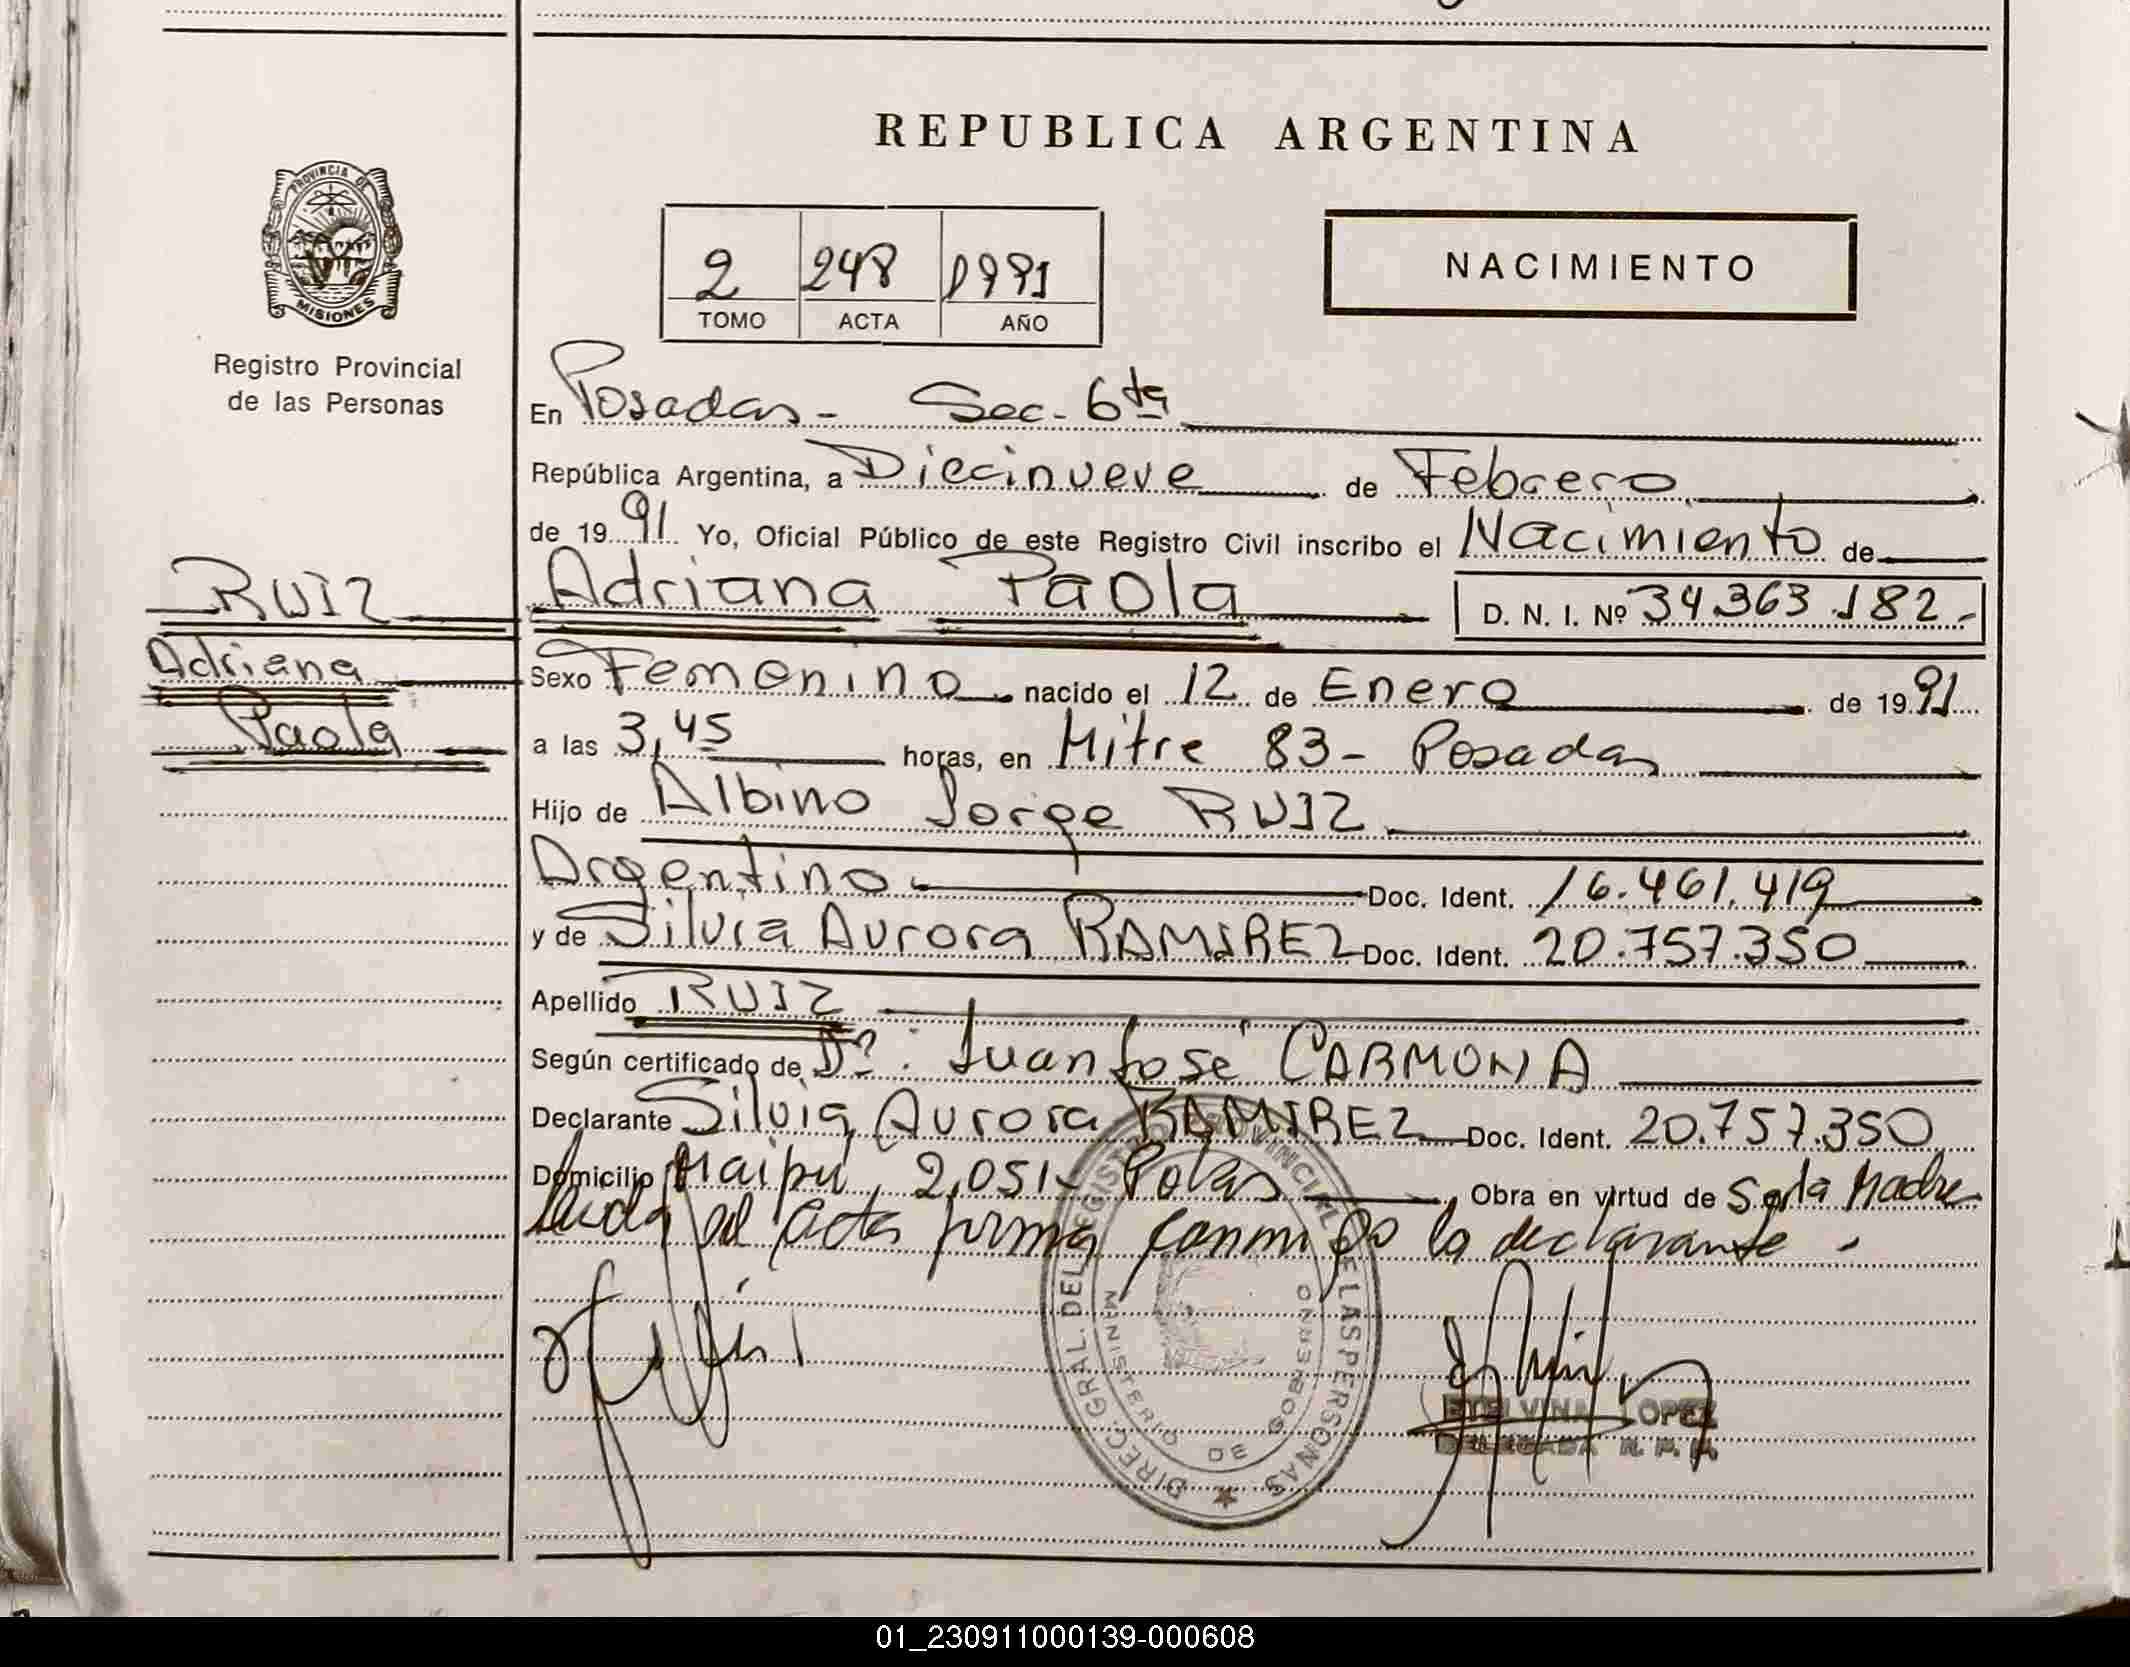 REPUBLICA ARGENTINA
PROVINCIA DE
MISIONES
Registro Provincial
de las Personas
2 248 1991
TOMO ACTA AÑO
NACIMIENTO
En Posadas - Sec. 6ta
República Argentina, a Diecinueve de Febrero
de 1991 Yo, Oficial Público de este Registro Civil inscribo el Nacimiento de
RUIZ
Adriana
Paola
Adriana Paola D. N. I. Nº 34.363.182.-
Sexo Femenino nacido el 12 de Enero de 1991
a las 3,45 horas, en Mitre 83 - Posadas
Hijo de Albino Jorge RUIZ
Argentino Doc. Ident. 16.461.419
y de Silvia Aurora RAMIREZ Doc. Ident. 20.757.350
Apellido RUIZ
Según certificado de Dr. Juan José CARMONA
Declarante Silvia Aurora RAMIREZ Doc. Ident. 20.757.350
Domicilio Maipú 2.051 - Pdas Obra en virtud de Ser la Madre
Leída el acta firma conmigo la declarante.
DIREC. GRAL. DEL REGISTRO PROVINCIAL DE LAS PERSONAS
MINISTERIO DE GOBIERNO
ETELVINA LOPEZ
DELEGADA R. P. P.
01_230911000139-000608